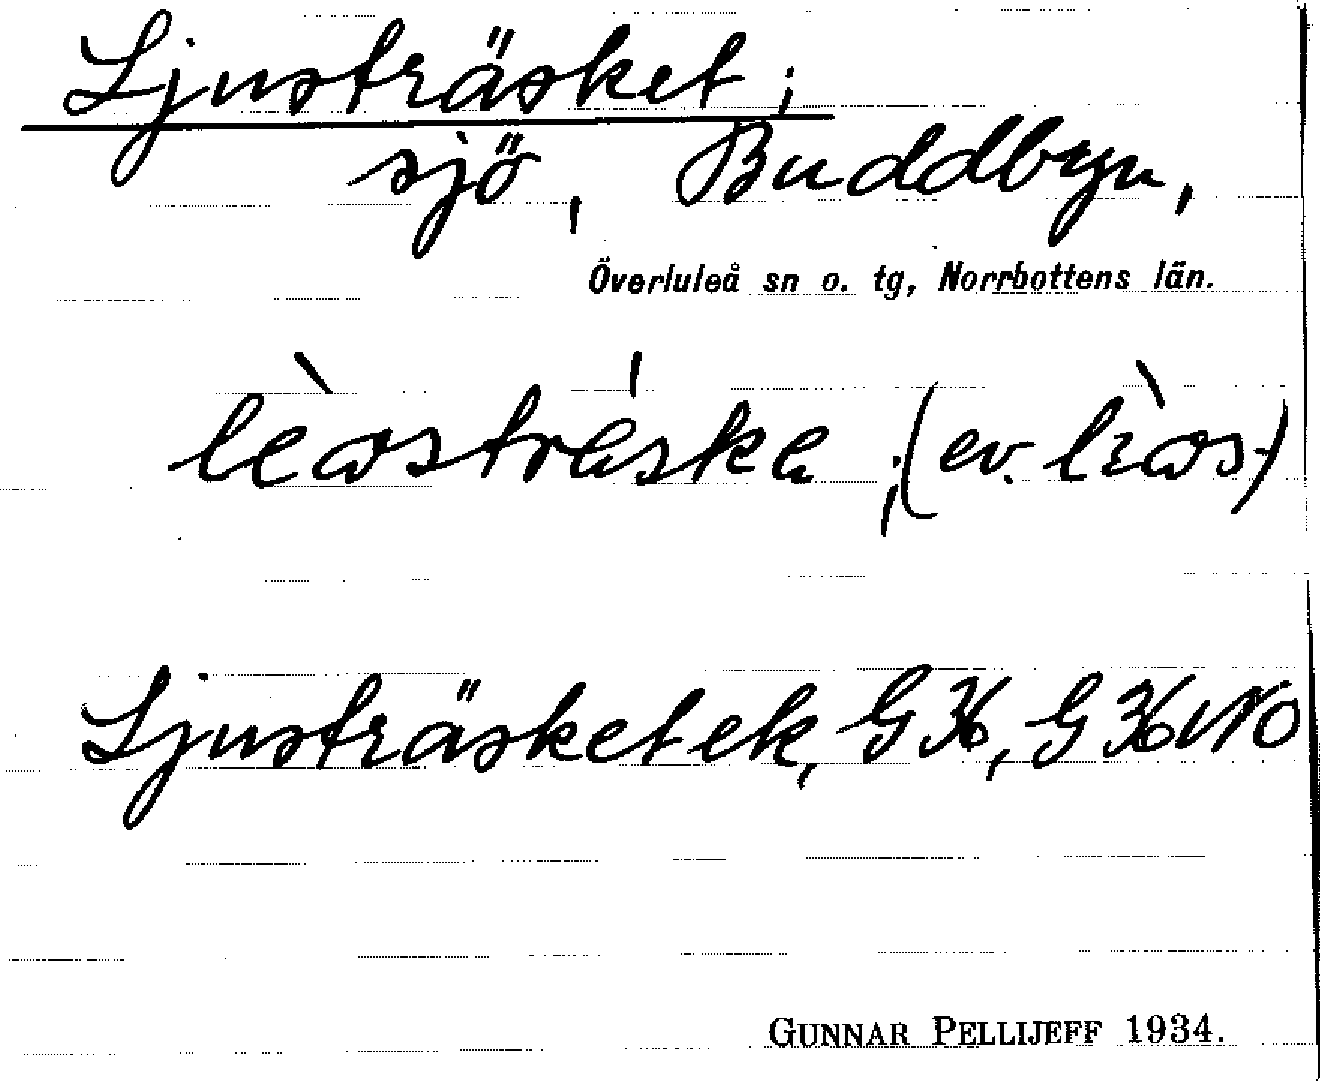 Ljusträsket;
sjö, Buddbyn,
Överluleå sn o. tg, Norrbottens län.
lèωstráska, (ev. lìωs-)
Ljusträsket ek, GK, GKNO
GUNNAR PELLIJEFF 1934.